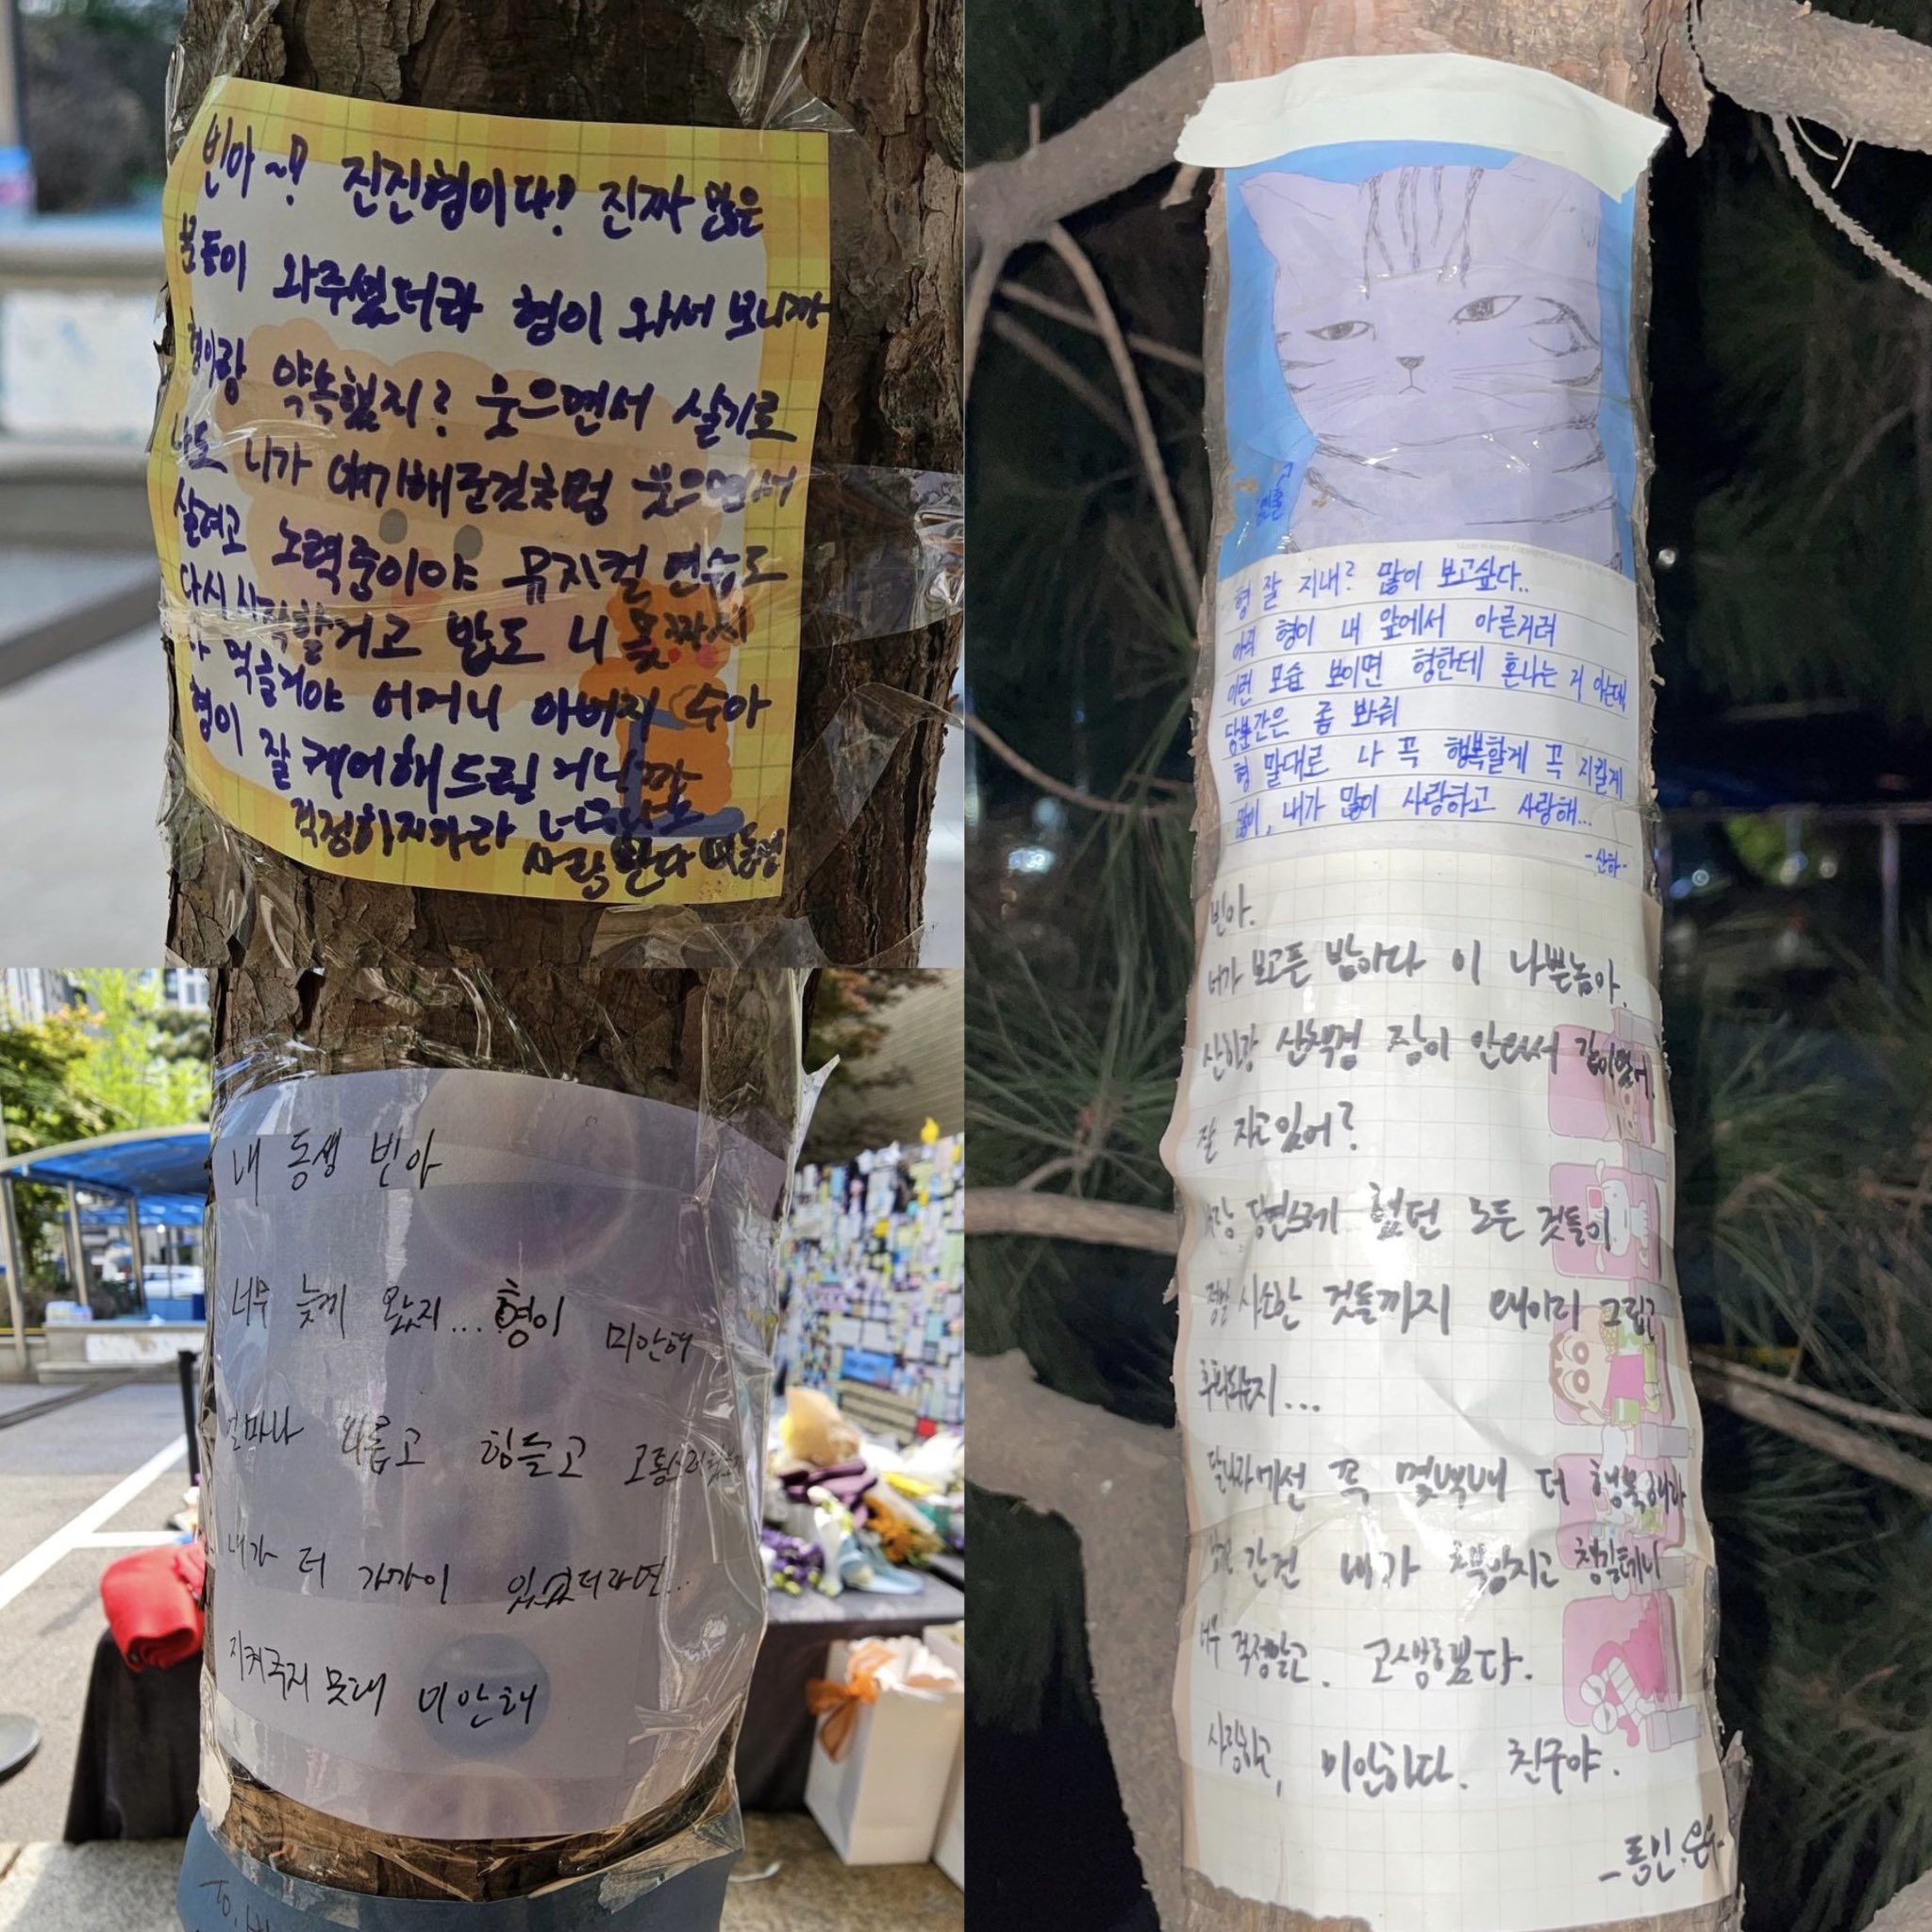 빈아~! 진진형이다? 진짜 많은
분들이 와주셨더라 형이 와서 보니까
형이랑 약속했지? 웃으면서 살기로
나도 니가 얘기해준것처럼 웃으면서
살려고 노력중이야 뮤지컬 연습도
다시 시작할거고 밥도 니 몫까지
다 먹을거야 어머니 아버지 수아
형이 잘 케어해드릴거니까
걱정하지마라 너무
사랑한다
내 동생 빈아
너무 늦게 왔지... 형이 미안해
얼마나 외롭고 힘들고 고통스러웠을까
내가 더 가까이 있었더라면...
지켜주지 못해 미안해
To.
형 잘 지내? 많이 보고싶다..
아직 형이 내 앞에서 아른거려
이런 모습 보이면 형한테 혼나는 거 아는데
당분간은 좀 봐줘
형 말대로 나 꼭 행복할게 꼭 지킬게
많이, 내가 많이 사랑하고 사랑해...
-산하-
빈아.
너가 보고픈 밤이다 이 나쁜놈아.
산하랑 산책겸 잠이 안와서 같이왔어.
잘 자고있어?
너랑 당연스레 했던 모든 것들이
정말 사소한 것들까지 왜이리 그립고
후회되는지...
달나라에선 꼭 몇백배 더 행복해라
남은 간건 내가 책임지고 챙길테니
너무 걱정말고. 고생했다.
사랑하고, 미안하다. 친구야.
-동민.은우-